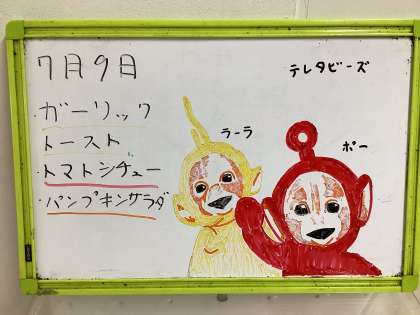 7月9日
・ガーリック
トースト
・トマトシチュー
・パンプキンサラダ
テレタビーズ
ラーラ
ポー